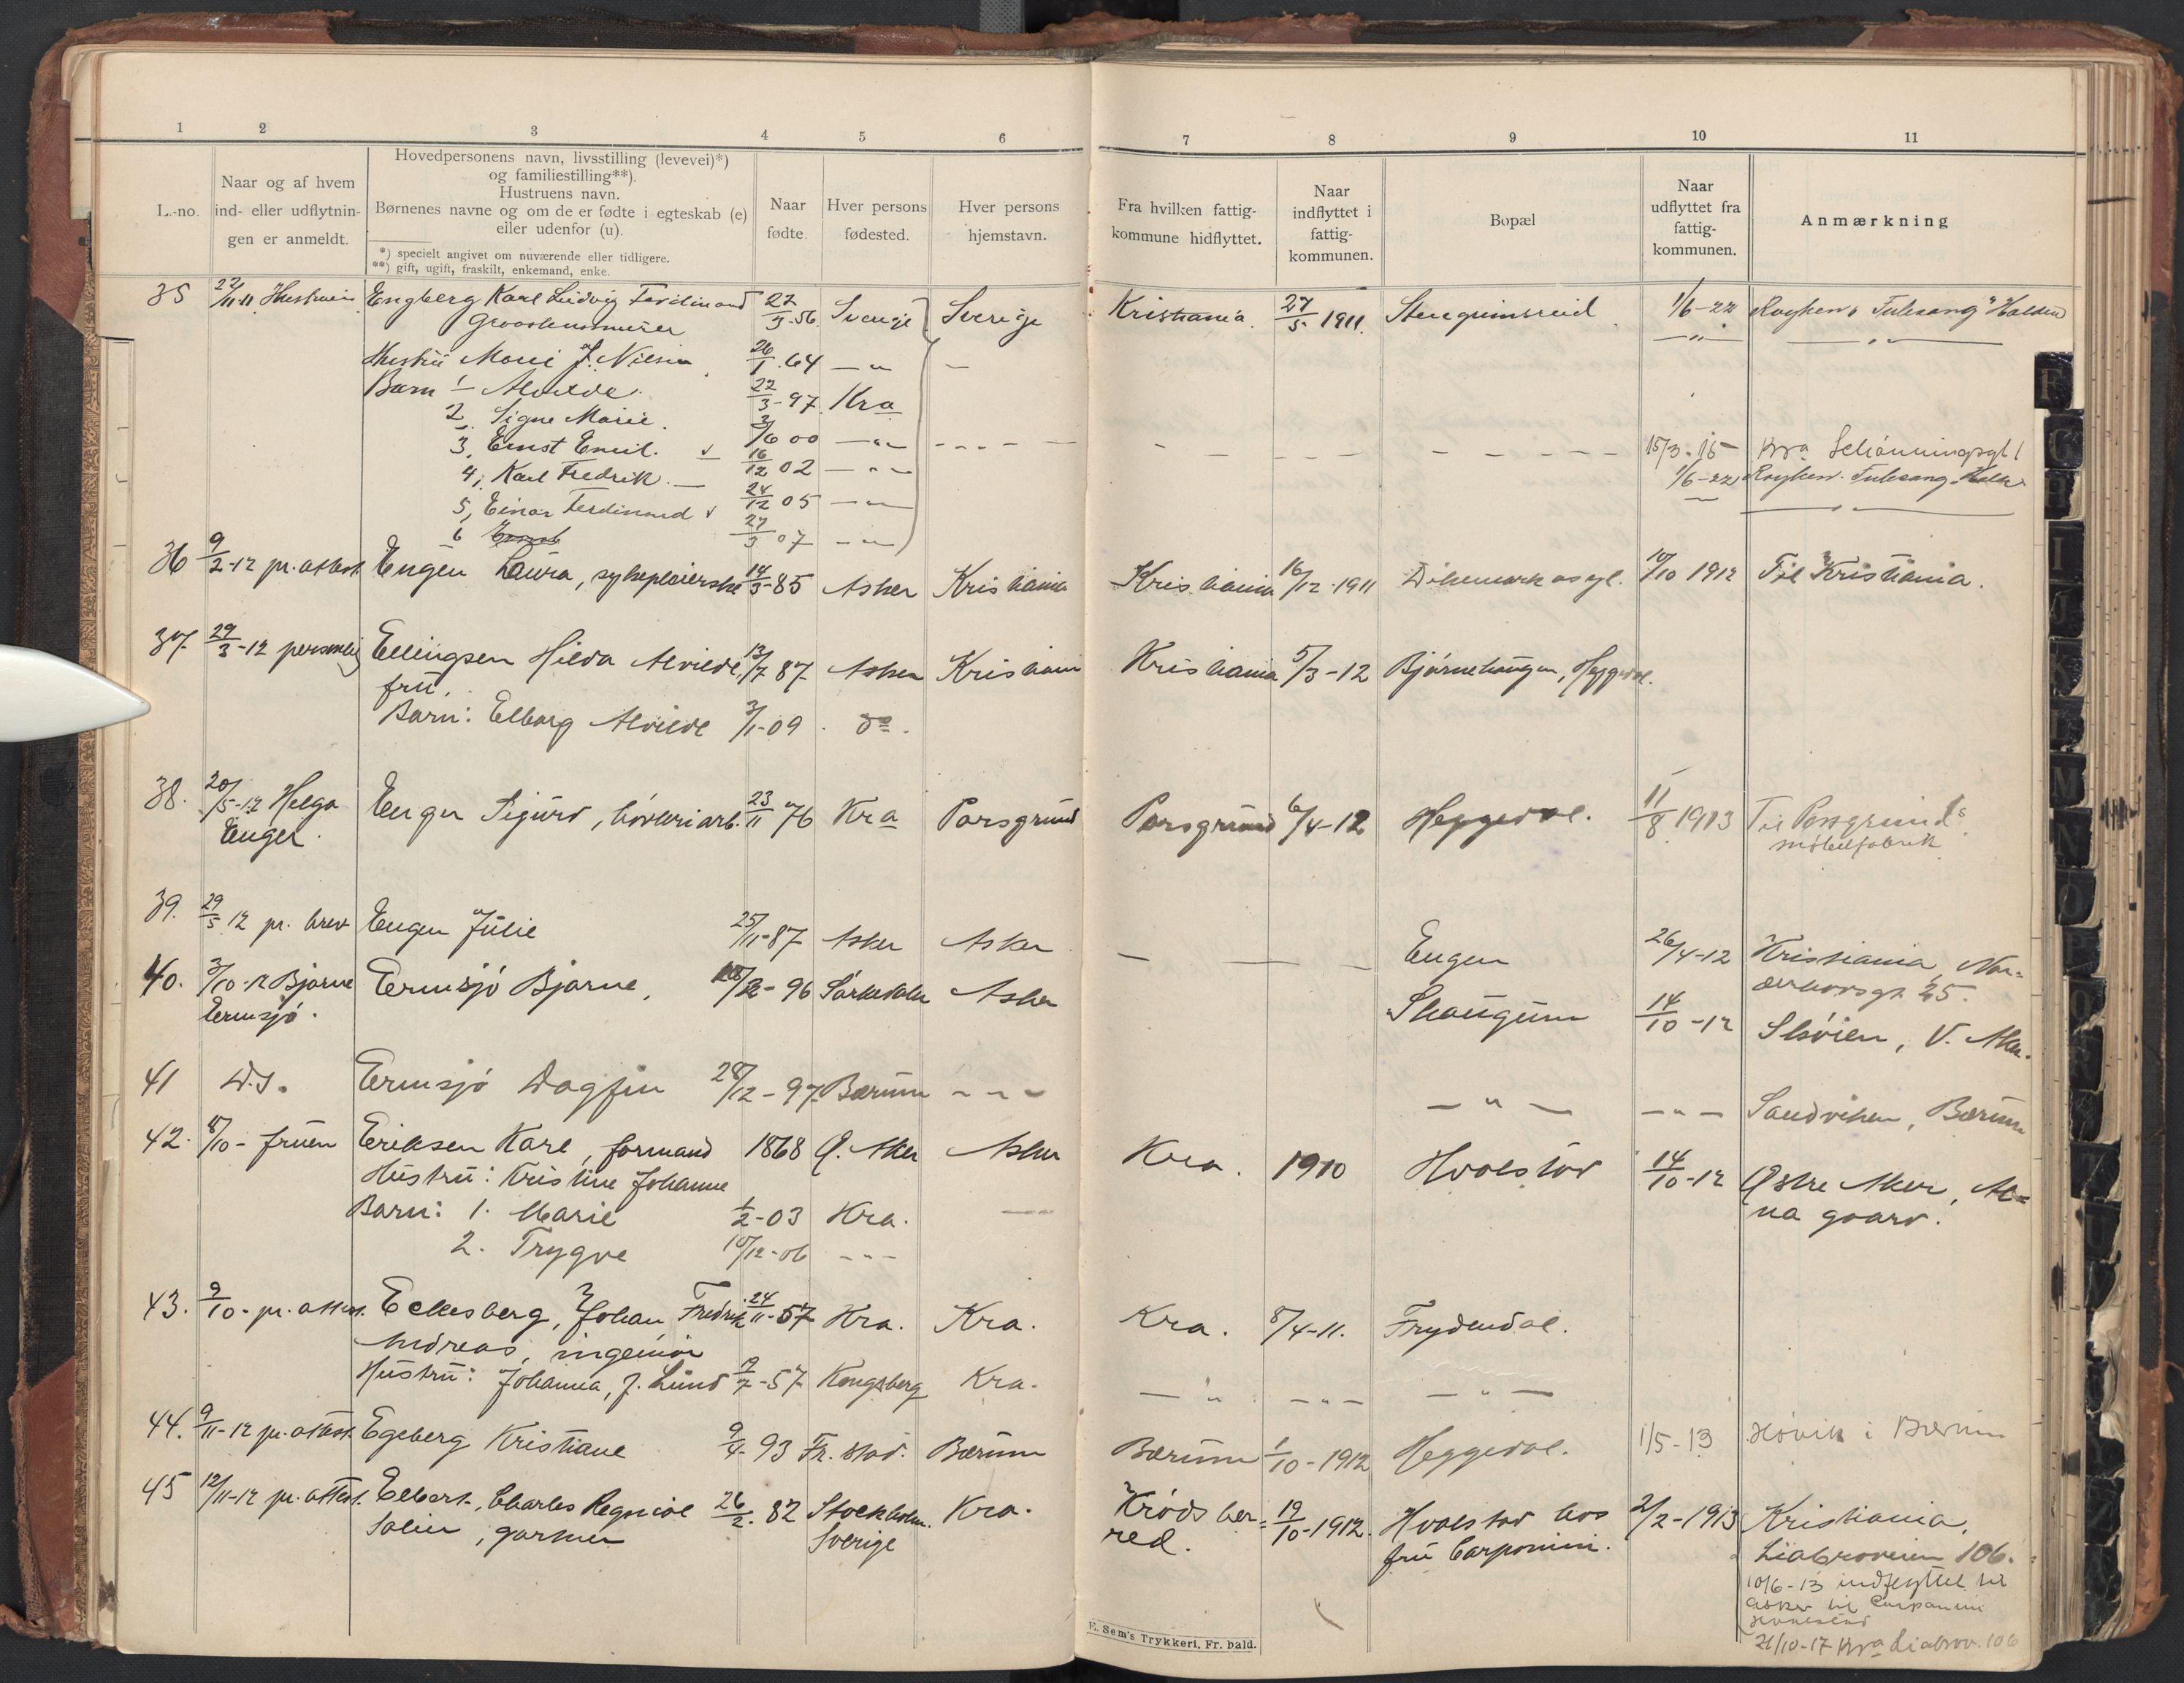 1 2 3 4 5 6 7 8 9 10 11
L.-no.
Naar og af hvem
ind- eller udflytnin-
gen er anmeldt.
Hovedpersonens navn, livsstilling (levevei)*)
og familiestilling**).
Hustruens navn.
Børnenes navne og om de er fødte i egteskab (e)
eller udenfor (u).
*) specielt angivet om nuværende eller tidligere.
**) gift, ugift, fraskilt, enkemand, enke.
Naar
fødte.
Hver persons
fødested.
Hver persons
hjemstavn.
Fra hvilken fattig-
kommune hidflyttet.
Naar
indflyttet i
fattig-
kommunen.
Bopæl
Naar
udflyttet fra
fattig-
kommunen.
Anmærkning
35 22/11-11 Hustruen Engberg Karl Ludvig Ferdinand 22/3-56 Sverige Sverige Kristiania 27/5-1911 Stengrimsreid 1/6-22 Røyken
Hustru Marie f. Nilsen 26/1 64 — „ — „ —
Barn 1 Alvilde 22/3-97 Kra
2. Signe Marie 3/6 00 — „ —
3, Ernst Emil. 16/12 02 — „ — 15/3-15 Kra
4, Karl Fredrik 24/12 05 — „ — 1/6-22 Røyken
5, Einar Ferdinand 27/3 07 — „ —
6
36 9/2-12 pr. attest. Engen Laura, sykepleierske 14/3-85 Asker Kristiania Kristiania 16/12-1911 Dikemark asyl. 10/10 1912 Til Kristiania.
37. 29/3-12 personlig Ellingsen Hilda Alvilde, 13/7 87. Asker Kristiania Kristiania 5/3-12 Bjørnehaugen, Heggedal.
fru.
Barn: Elborg Alvilde 3/1-09 do.
38. 20/5-12 Helga Enger Sigurd, høvleriarb. 23/11 76 Kra Porsgrund Porsgrund 6/4-12 Heggedal. 11/8 1913 Til Porsgrunds
Enger. møbelfabrik
39. 29/5 12 pr. brev Engen Julie 25/11-87 Asker Asker — — — Engen 26/4-12 Kristiania, Nor=
derhovsgt. 25.
40. 3/10-12 Bjarne Ermsjø Bjarne, 96 Sørkedalen Asker Skaugum 14/10-12 Sløien, V. Aker.
Ermsjø.
41 D.s. Ermsjø Dagfin 28/12-97. Bærum - - - — „ — — „ — Sandviken, Bærum
42. 8/10- fruen Eriksen Karl, formand 1868 Ø. Aker Asker Kra. 1910 Hvalstad 14/10-12 Østre Aker, Al=
na gaard.
Hustru: Kristine Johanne
Barn: 1. Marie 1/2-03 Kra.
2. Trygve 10/12-06 - „ -
43. 9/10- pr. attest. Eckesberg, Johan Fredrik 24/11-57 Kra. Kra. Kra. 8/4-11. Frydendal.
Andreas, ingeniør
Hustru: Johanna, f. Lund 12/7-57 Kongsberg Kra. — „ — — „ — — „ —
44. 9/11-12 pr. attest. Egeberg Kristiane 9/4-93 Fr. stad. Bærum Bærum 1/10-1912 Heggedal. 1/5-13 Høvik i Bærum
45 12/11-12 pr. attest. Elbert, Charles 26/2. 82 Stockholm. Kra. Krødsher= 19/10-1912. Hvalstad hos 2/2-1913 Kristiania,
, gartner Sverige red. fru Carponini. Liabroveien 106.
10/6-13 indflyttet til
Asker til Carponini
Hvalstad
21/10-17 Kra Liabrov. 106
E. Sem's Trykkeri, Fr. hald.